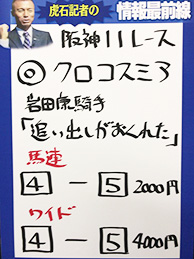 虎石記者の
情報最前線
阪神11レース
◎クロコスミア
岩田康騎手
「追い出しがおくれた」
馬連
4－5 2000円
ワイド
4－5 4000円